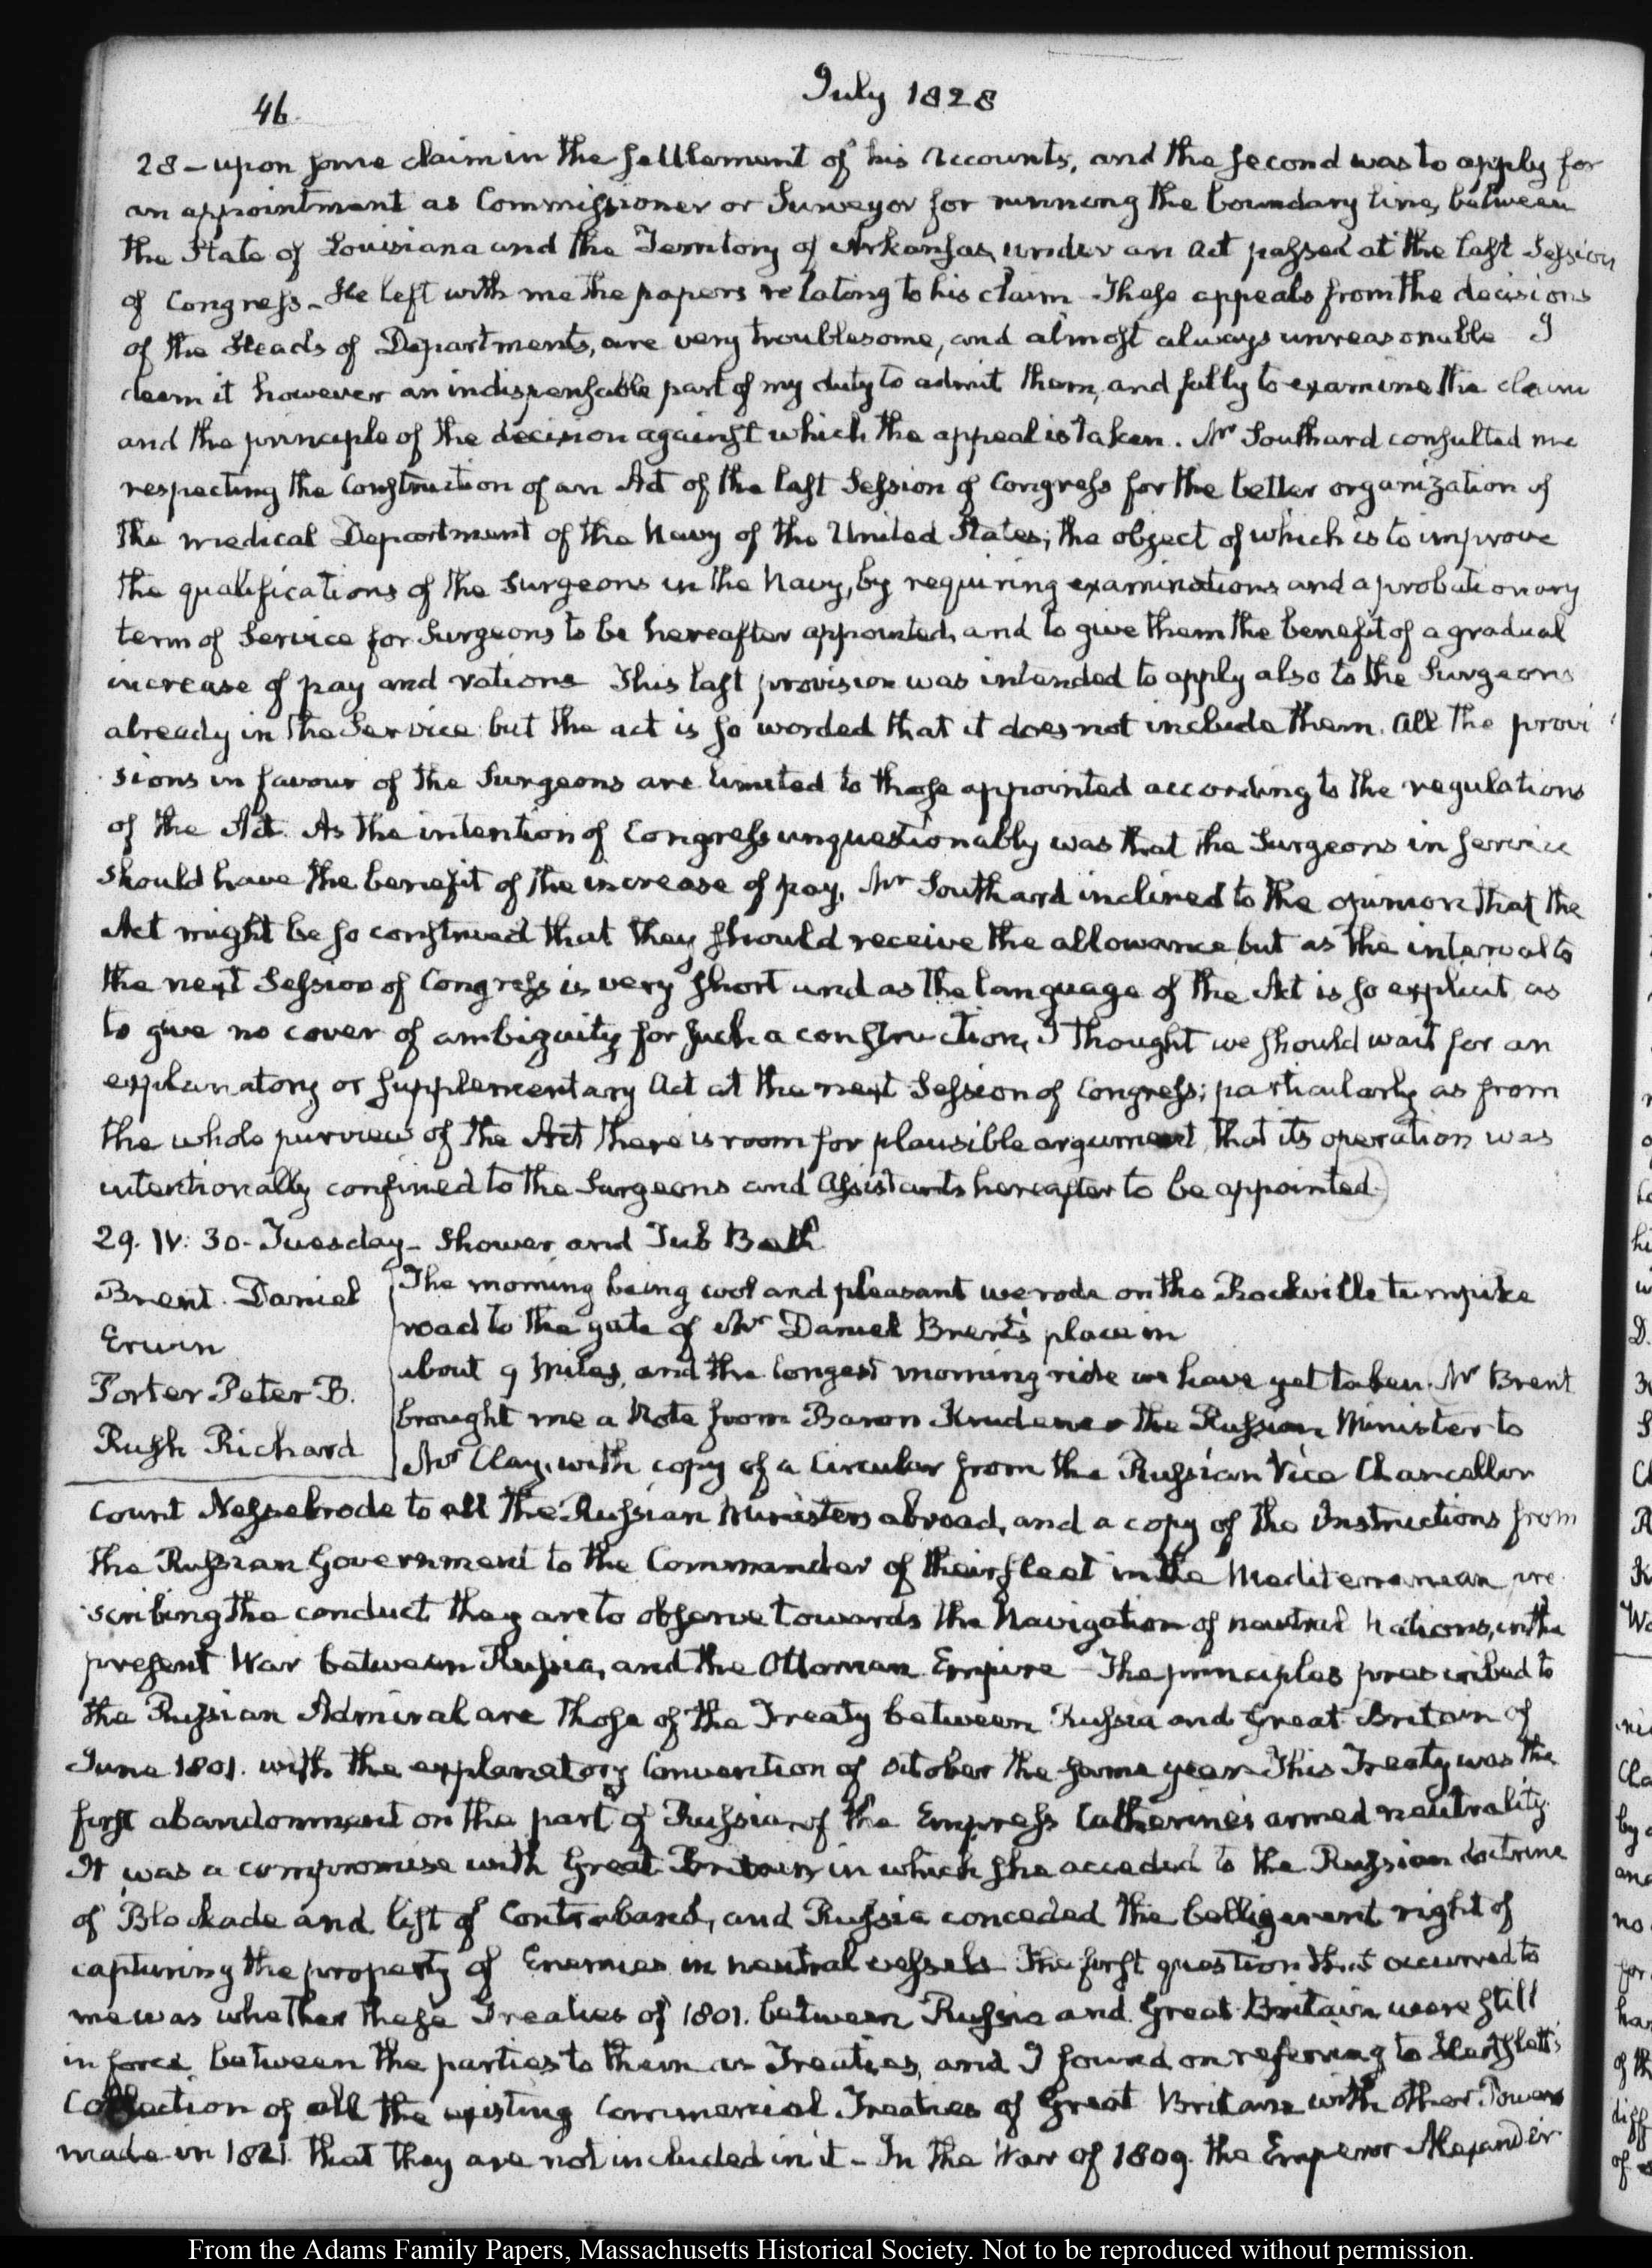 46.
July 1828
28 – upon some claim in the settlement of his Accounts, and the second was to apply for
an appointment as Commissioner or Surveyor for running the boundary line, between
the State of Louisiana and the Territory of Arkansas, under an Act passed at the last Session
of Congress – He left with me the papers relating to his claim – These appeals from the decisions
of the Heads of Departments, are very troublesome, and almost always unreasonable I
deem it however an indispensable part of my duty to admit them, and fully to examine the claim
and the principle of the decision against which the appeal is taken. Mr Southard consulted me
respecting the Construction of an Act of the last Session of Congress for the better organization of
the medical Department of the Navy of the United States; the object of which is to improve
the qualifications of the Surgeons in the Navy, by requiring examinations and a probationary
term of Service for Surgeons to be hereafter appointed, and to give them the benefit of a gradual
increase of pay and rations This last provision was intended to apply also to the Surgeons
already in the Service but the act is so worded that it does not include them. All the provi
sions in favour of the Surgeons are limited to those appointed according to the regulations
of the Act. As the intention of Congress unquestionably was that the Surgeons in service
should have the benefit of the increase of pay, Mr Southard inclined to the opinion that the
Act might be so construed that they should receive the allowance but as the interval to
the next Session of Congress is very short and as the language of the Act is so explicit as
to give no cover of ambiguity for such a construction, I thought we should wait for an
explanatory or supplementary Act at the next Session of Congress; particularly as from
the whole purview of the Act there is room for plausible argument, that its operation was
intentionally confined to the Surgeons and Assistants hereafter to be appointed.
29. IV: 30 – Tuesday – Shower and Tub Bath
Brent. Daniel
Erwin
Porter Peter B.
Rush Richard
The morning being cool and pleasant we rode on the Rockville turnpike
road to the gate of Mr Daniel Brent's place in
about 9 Miles, and the longest morning ride we have yet taken. Mr Brent
brought me a Note from Baron Krudener the Russian Minister to
Mr Clay, with copy of a Circular from the Russian Vice Chancellor
Count Nesselrode to all the Russian Ministers abroad, and a copy of the Instructions from
the Russian Government to the Commander of their fleet in the Mediterranean pre
scribing the conduct they are to observe towards the Navigation of neutral Nations, in the
present War between Russia, and the Ottoman Empire – The principles prescribed to
the Russian Admiral are those of the Treaty between Russia and Great Britain of
June 1801. with the explanatory Convention of October the same year This Treaty was the
first abandonment on the part of Russia, of the Empress Catherine's armed neutrality.
It was a compromise with Great Britain in which she acceded to the Russian doctrine
of Blockade and list of Contraband, and Russia conceded the belligerent right of
capturing the property of Enemies in neutral vessels The first question that occurred to
me was whether these Treaties of 1801. between Russia and Great Britain were still
in force between the parties to them as Treaties, and I found on referring to Hertslett's
Collection of all the existing Commercial Treaties of Great Britain with other Powers
made in 1821. that they are not included in it – In the War of 1809. the Emperor Alexander
From the Adams Family Papers, Massachusetts Historical Society. Not to be reproduced without permission.